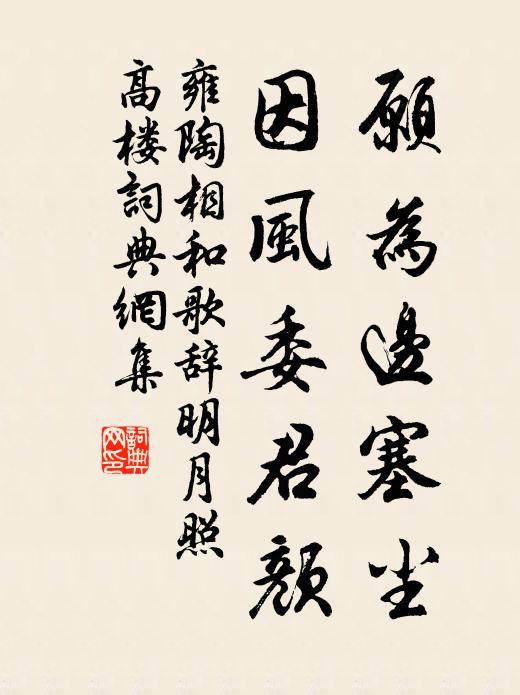 願為邊塞塵
因風委君顏
雍陶相和歌辞明月照
高楼詞典網集
詞典
网印